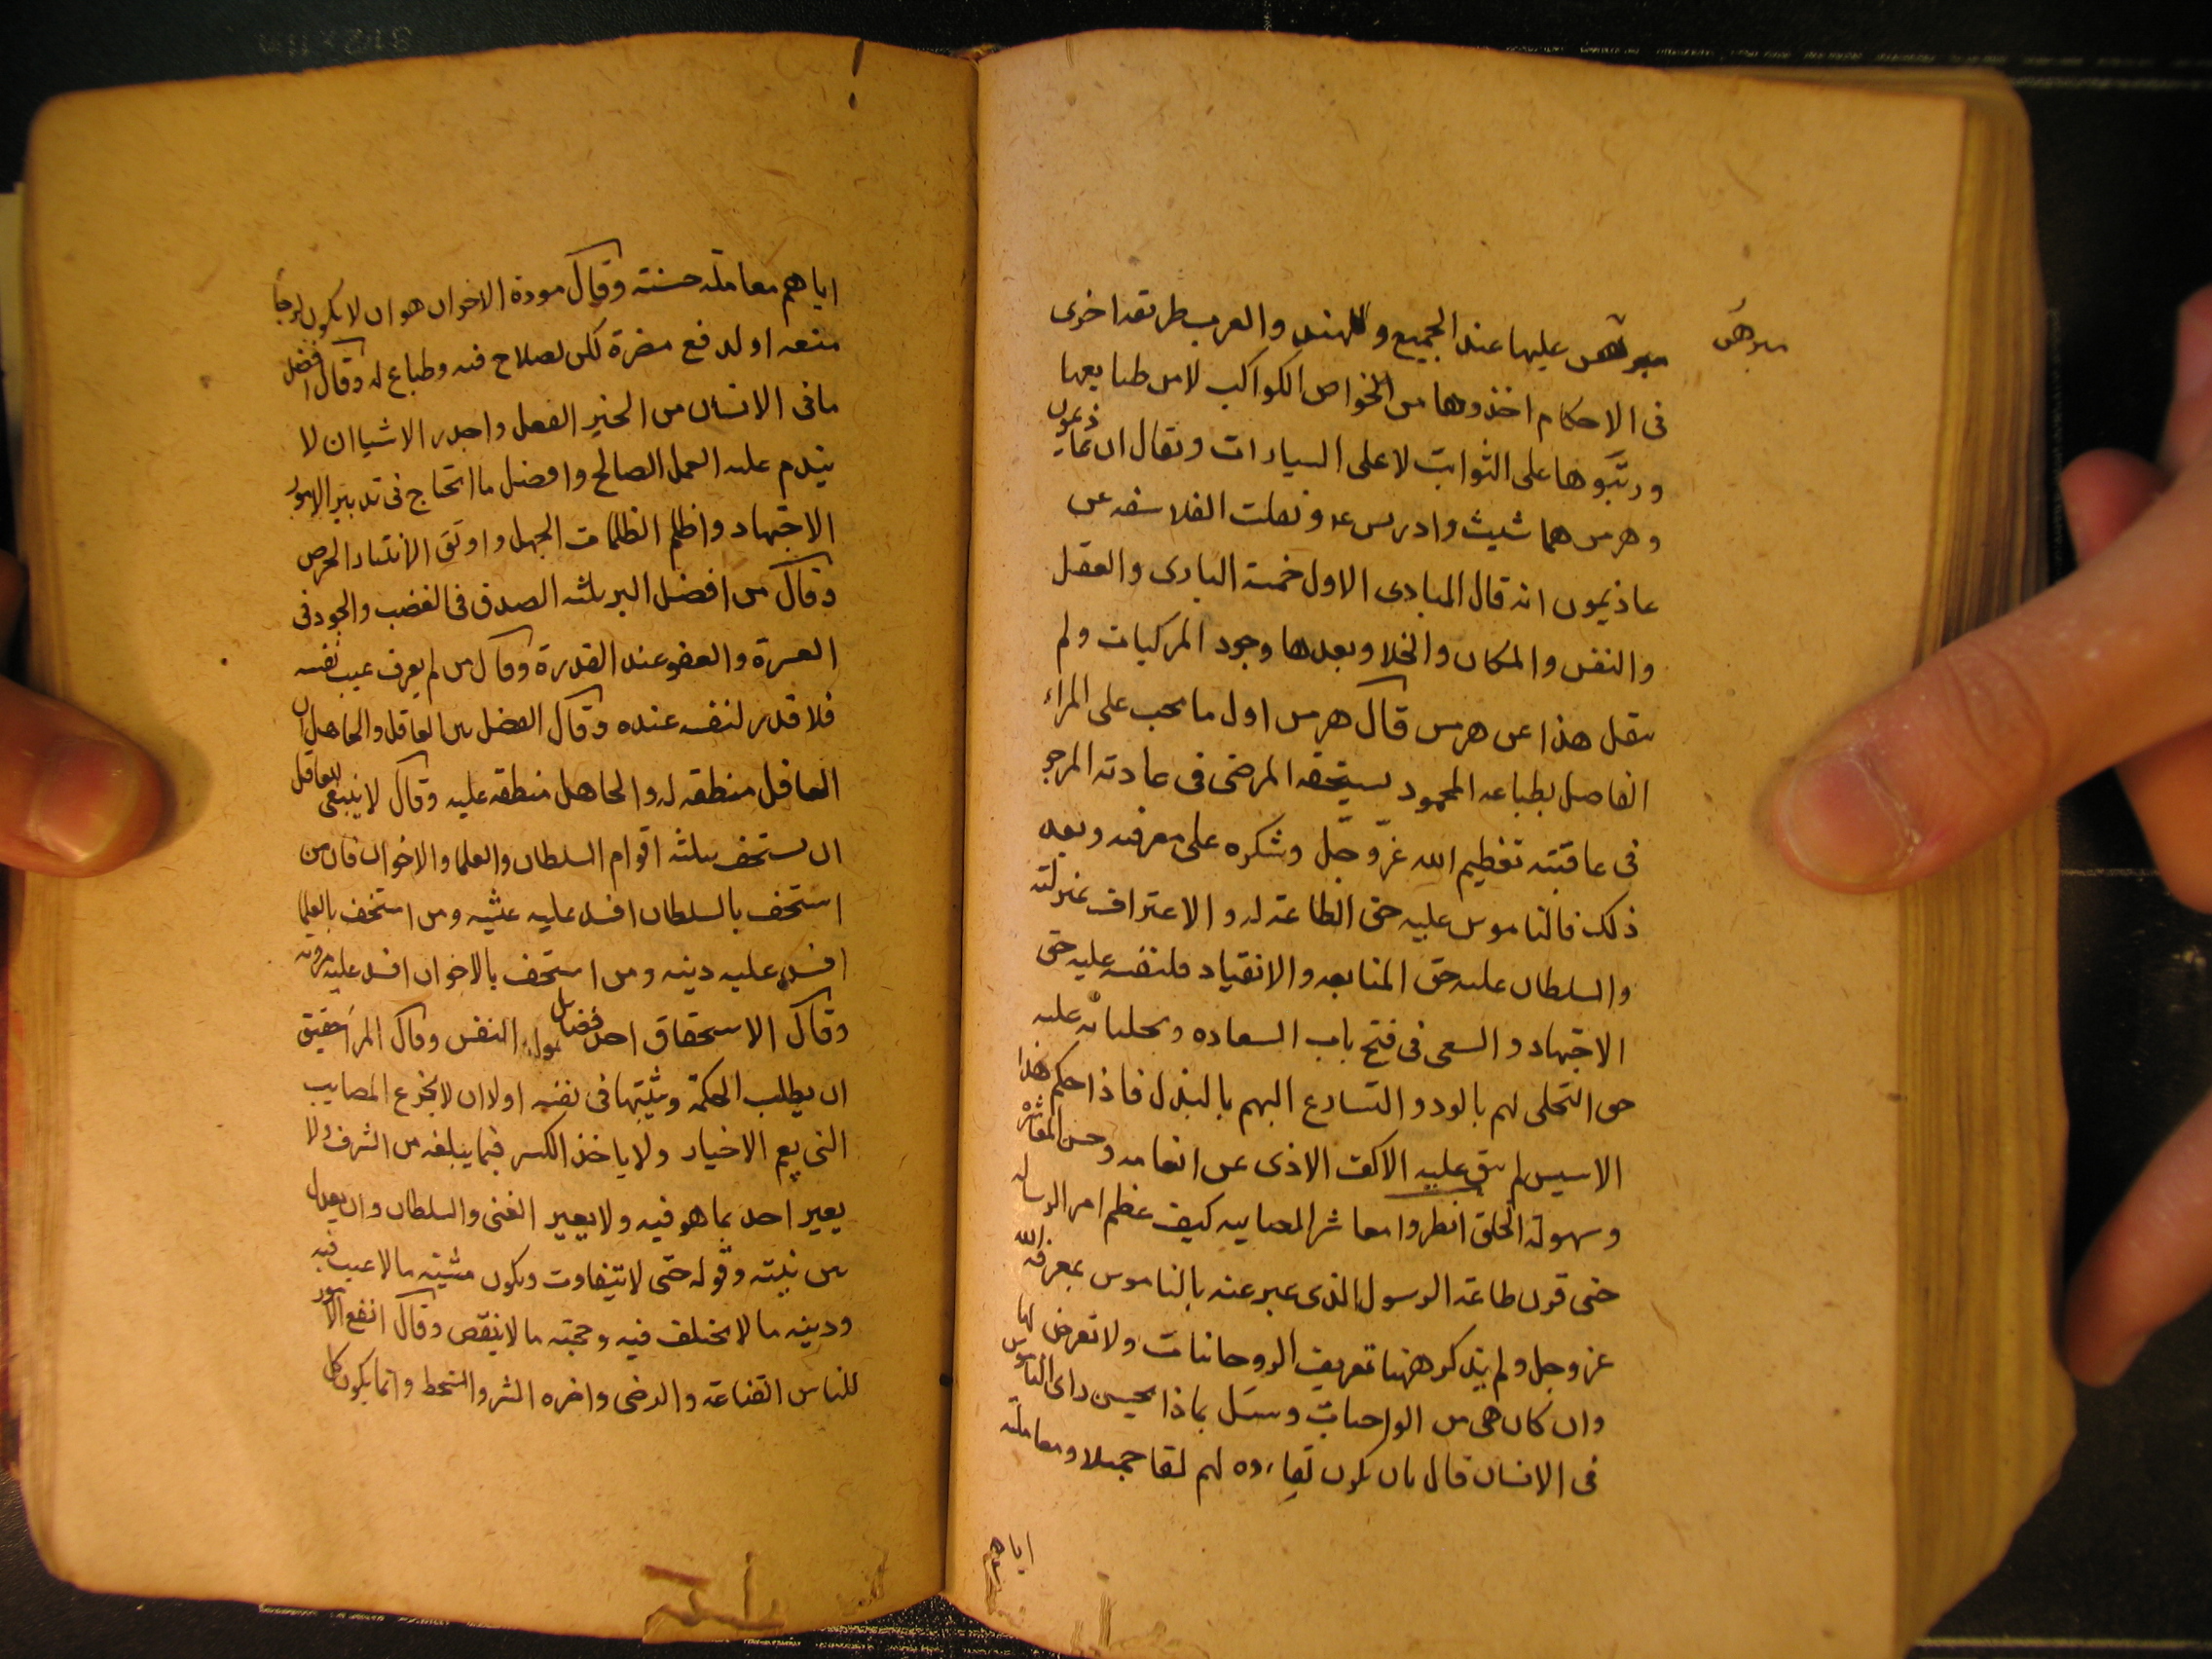 مبرهن
مبرهن عليها عند الجميع وللهند والعرب طريقة اخرى
فى الاحكام اخذوها من الخواص الكواكب لا من طبايعها
ورتبوها على الثوابت لا على السيارات ويقال ان عاذيمون
وهرمس هما شيث وادريس ع ونقلت الفلاسفه عن
عاذيمون انه قال المبادى الاول خمسة البارى والعقل
والنفس والمكان والخلا وبعدها وجود المركبات ولم
ينقل هذا عن هرمس قال هرمس اول ما يجب على المراء
الفاضل بطباعه المحمود بسنخه المرضى فى عادته المرجو
فى عاقبته تعظيم الله عز وجل وشكره على معرفته وبعد
ذلك فالناموس عليه حق الطاعة له والاعتراف بمنزلته
والسلطان عليه حق المنابعه والانقياد ولنفسه عليه حق
الاجتهاد والسعى فى فتح باب السعاده ولخلصائه عليه
حق التحلى لهم بالود والتسارع اليهم بالبذل فاذا احكم هذا
الاسيس لم يبق عليه الا كف الاذى عن العامه وحسن المعاشرة
وسهولة الخلق انظروا معاشر الصابيه كيف عظم امر الرساله
حتى قرن طاعة الرسول الذى عبر عنه بالناموس بمعرفة الله
عز وجل ولم يذكر ههنا تعريف الروحانيات ولا تعرض لها
وان كان هى من الواجبات وسئل بماذا يحسن راى الناس
فى الانسان قال بان يكون لقاؤه لهم لقا جميلا ومعاملته
اياهم
اياهم معاملة حسنته وقال مودة الاخوان هو ان لا يكون لرجا
منعه او لدفع مضرة لكن لصلاح فيه وطباع له وقال افضل
ما فى الانسان من الخير الفعل واجدر الاشيا ان لا
يندم عليه العمل الصالح وافضل ما احتاج فى تدبير الامور
الاجتهاد واظلم الظلمات الجهل واوثق الاشياء الحرص
وقال من افضل البر ثلثه الصدق فى الغضب والجود فى
العسرة والعفو عند القدرة وقال من لم يعرف عيب نفسه
فلا قدر لنفسه عنده وقال الفضل بين العاقل والجاهل ان
العاقل منطقه له والجاهل منطقه عليه وقال لا ينبغى للعاقل
ان يستخف بثلثه اقوام السلطان والعلما والاخوان فان من
استخف بالسلطان افسد عليه عيشه ومن استخف بالعلما
افسد عليه دينه ومن استخف بالاخوان افسد عليه مروته
وقال الاستخفاف احد فضايل النفس وقال المراء حقيق
ان يطلب الحكمة ويثبتها فى نفسه اولا ان لا يجزع المصايب
التى يعم الاخيار ولا ياخذ الكبر فيما يبلغه من الشرف ولا
يعير احد بما هو فيه ولا يعيير الغنى والسلطان وان يعدل
بين نيته وقوله حتى لا يتفاوت ويكون سنته ما لا عيب فيه
ودينه ما لا يختلف فيه وحجته ما لا ينقص وقال انفع الامور
للناس القناعة والرضى واضره الشر والسخط وانما يكون كل